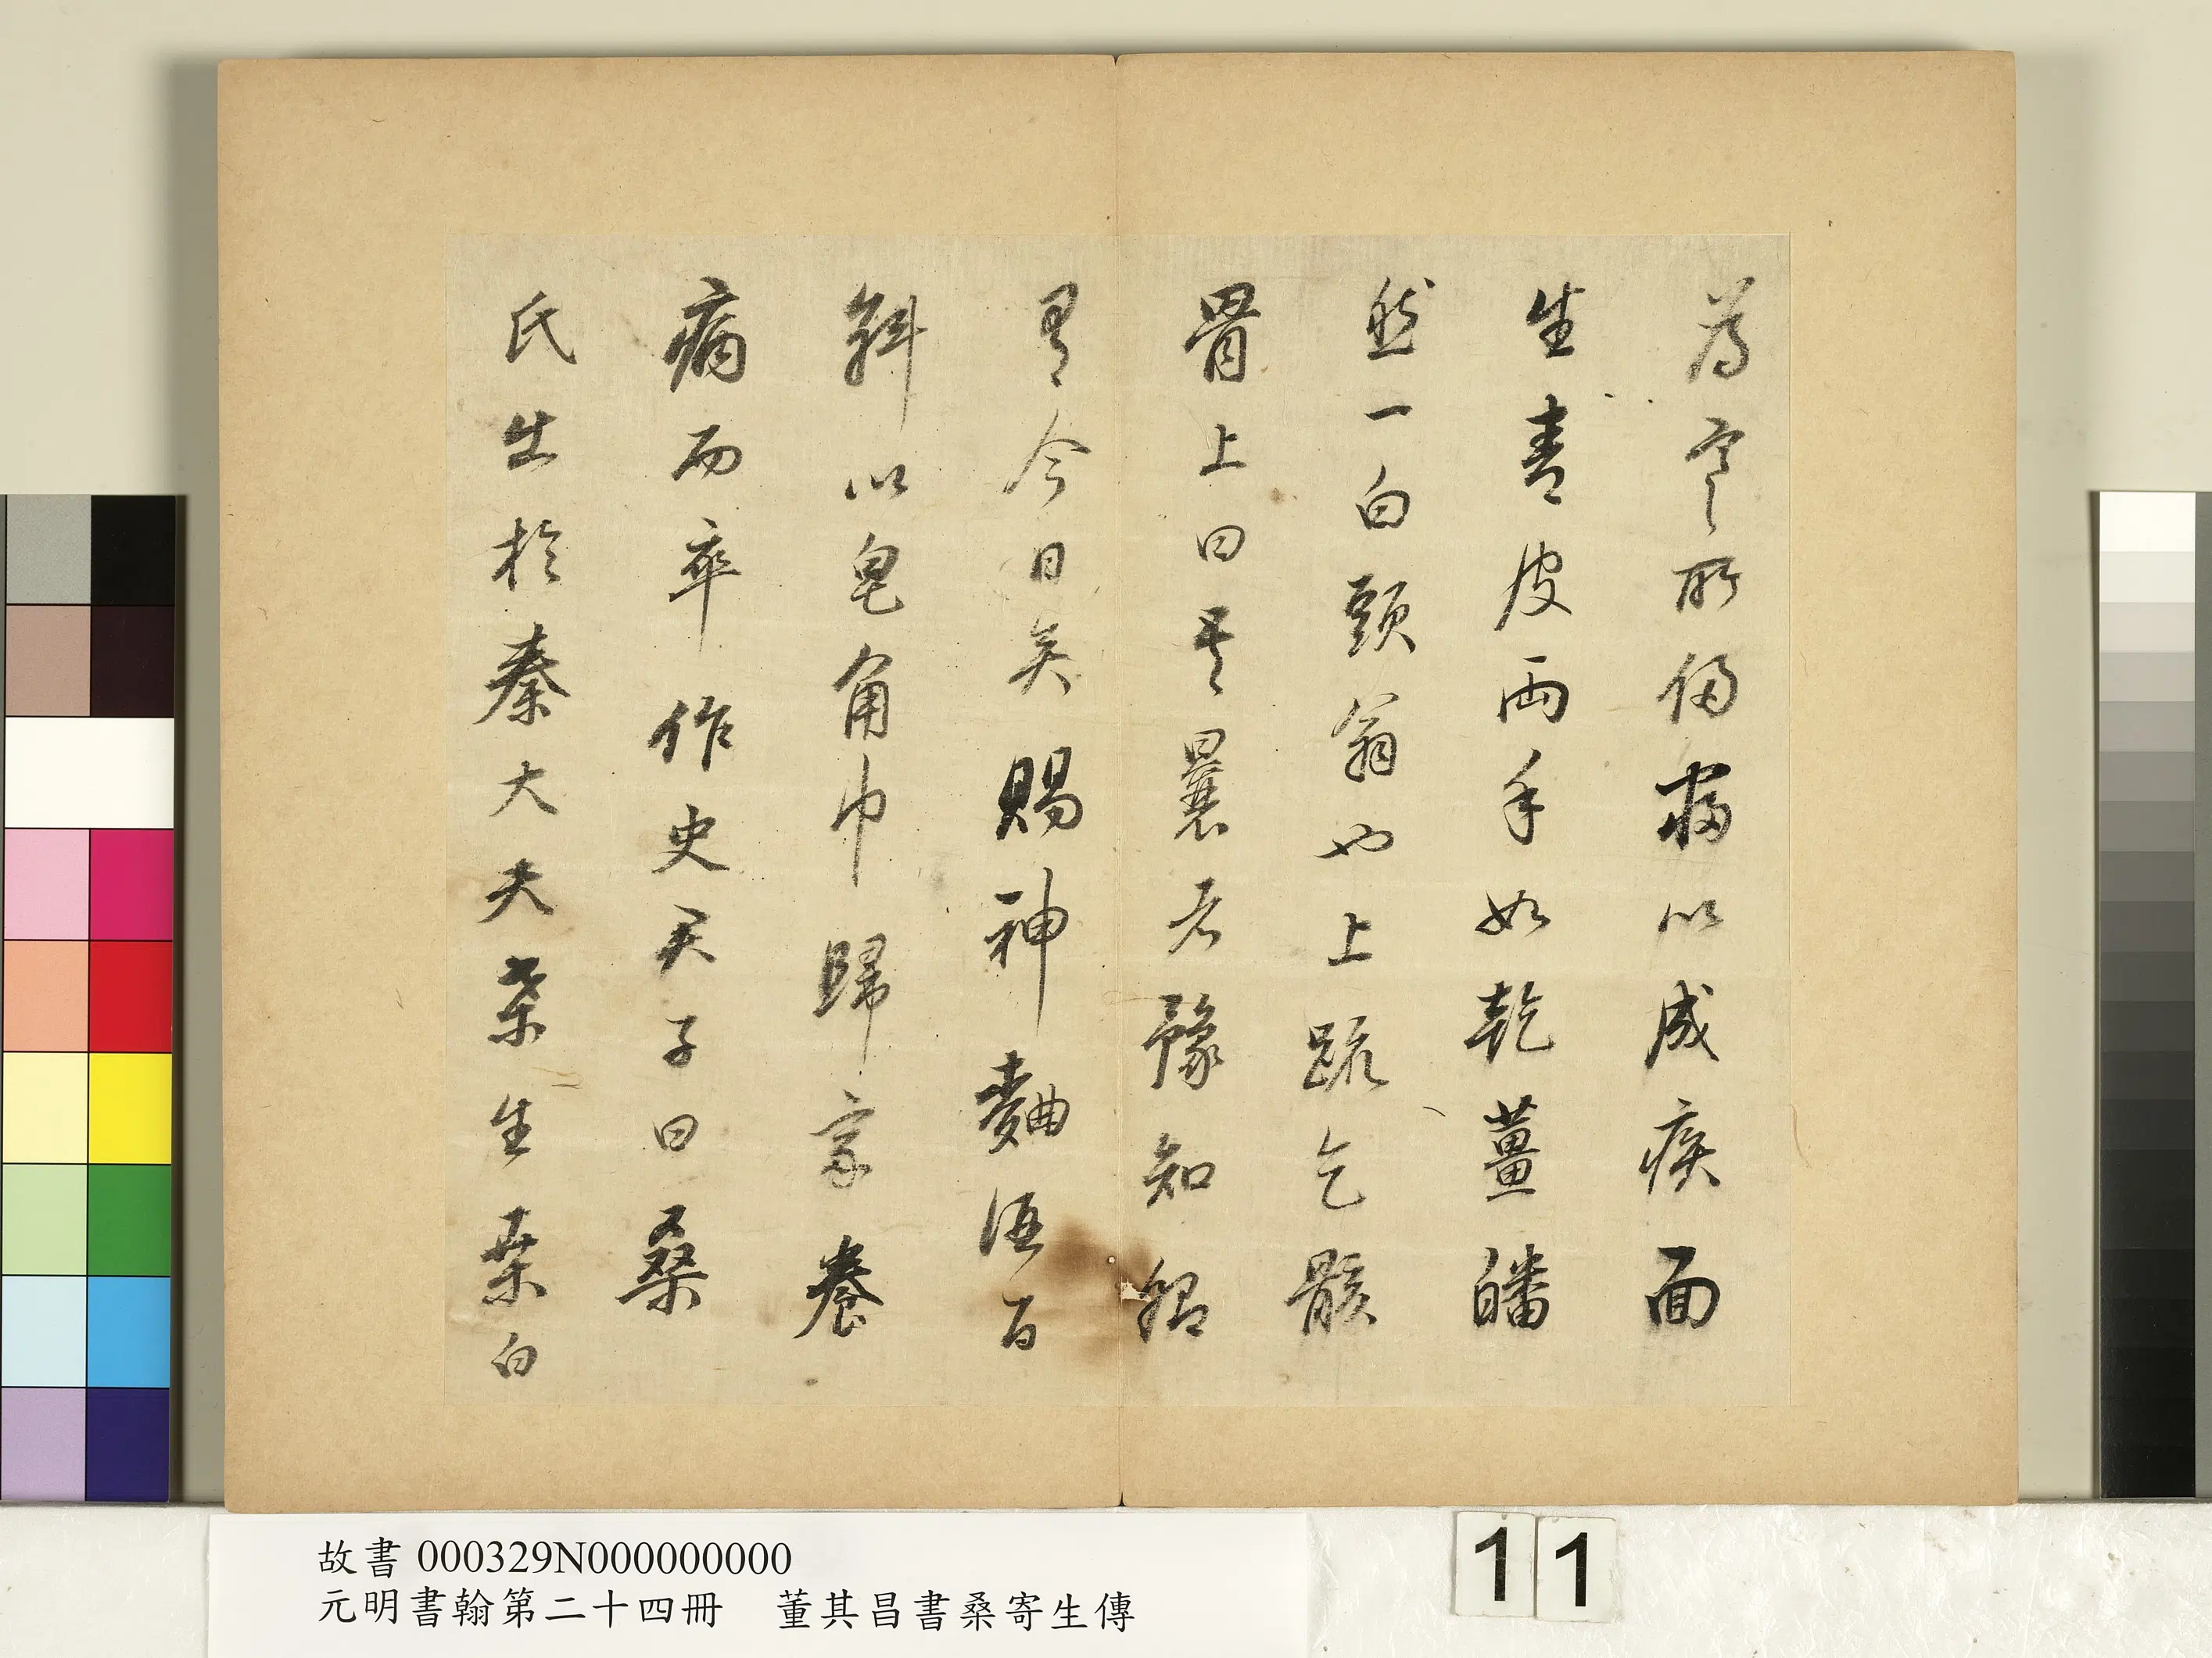 為寒所侵寖以成疾面
生青皮兩手如乾薑皤
然一白頭翁也上疏乞骸
骨上曰吾曩者豫知卿
有今日矣賜神麯酒百
斛以皂角巾歸家養
病而卒作史君子曰桑
氏出於秦大夫桑生桑白
故書 000329N000000000
元明書翰第二十四冊　董其昌書桑寄生傳
11